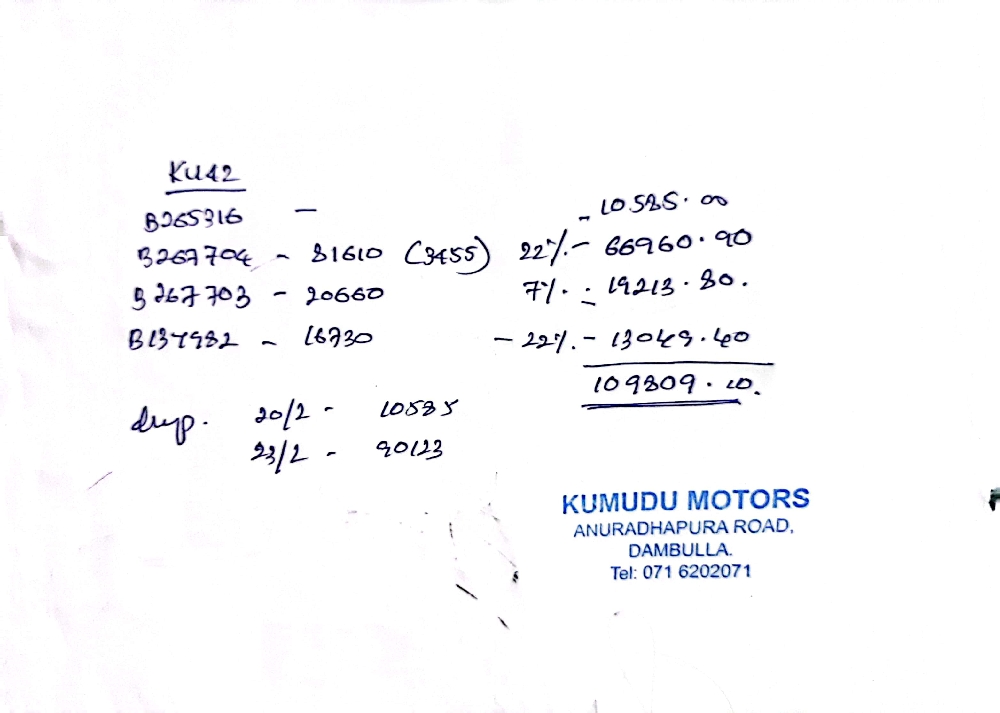 KU42
B265316 - - 10585.00
B267704 - 81610 (3455) 22% - 66960.90
B267703 - 20660 7% - 19213.80.
B137982 - 16730 - 22% - 13049.40
109809.10.
dup. 20/2 - 10585
23/2 - 90123
KUMUDU MOTORS
ANURADHAPURA ROAD,
DAMBULLA.
Tel: 071 6202071